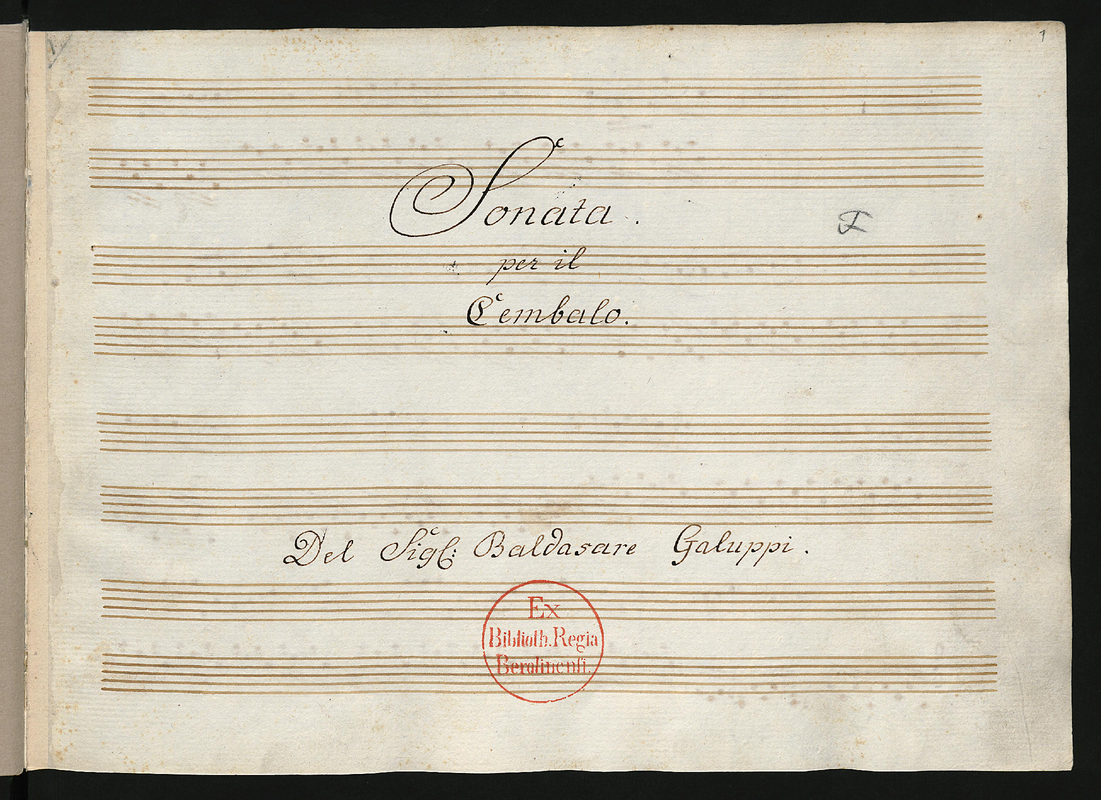 1
Sonata.
F
per il
Cembalo.
Del Sigl: Baldasare Galuppi.
Ex
Biblioth. Regia
Berolinensi.